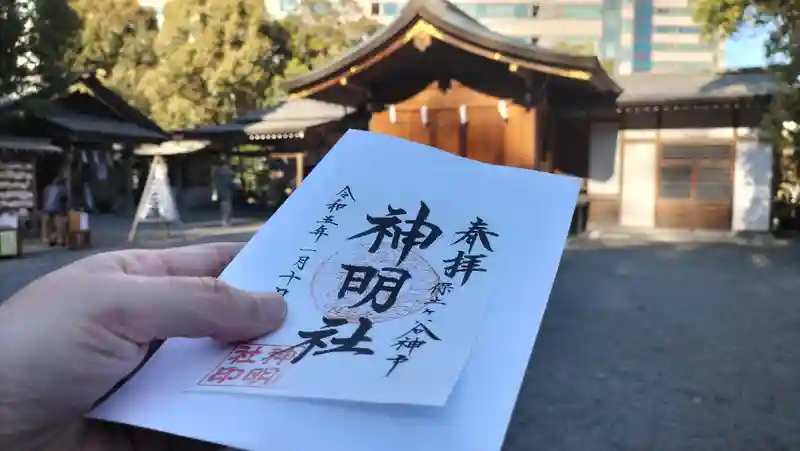 春拝
保土ヶ谷神戸
神明社
令和五年 一月十日
神明社印